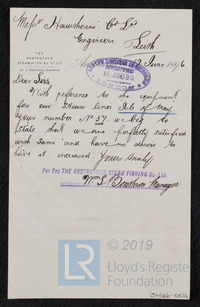 Messrs Hawthorns & Co Ld
Engineers Leith
THE
ANSTRUTHER
STEAM FISHING Co. Ld.
June 1896
Dear Sirs
With reference to the equipment
for our steam liner Isle of May
your number No 57. we beg to
state that we are perfectly satisfied
with same and have no desire to
have it increased. Yours truly
For Pro THE ANSTRUTHER STEAM FISHING Co. Ltd.
Manager
© 2019
Lloyd's Register
Foundation